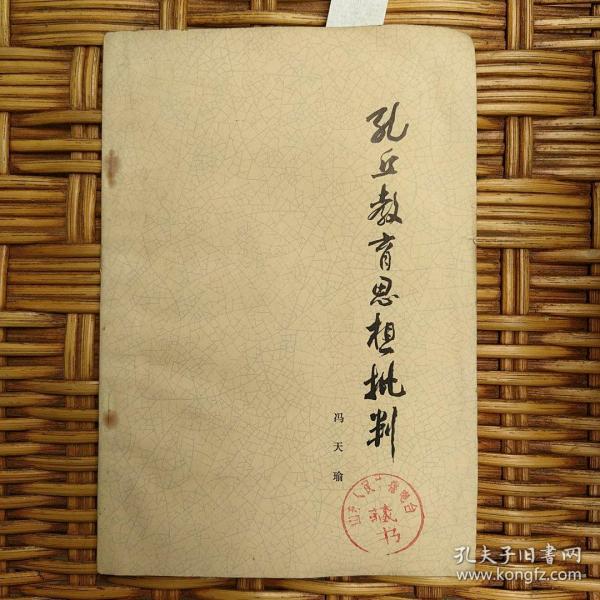 孔丘教育思想批判
冯天瑜
藏书
孔夫子旧书网
www.kongfz.com